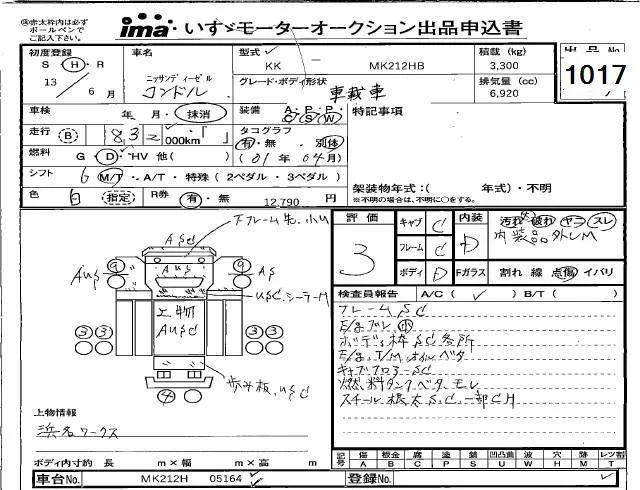 ※赤太枠内は必ず
ボールペンで
ご記入下さい。
ima いすゞモーターオークション出品申込書
初度登録 車名 型式 積載 (kg) 出品No
S H・R ニッサンディーゼル KK － MK212HB 3,300 1017
13 6月 コンドル グレード・ボディ形状 排気量 (cc)
車載車 6,920
車検 年 月・抹消 装備 A・P・P・C・S・W 特記事項
走行 B 832 000km タコグラフ
有・無 別体
燃料 G・D・HV 他( ) (01年04月)
シフト 6 M/T・A/T・特殊 (2ペダル・3ペダル) 架装物年式：( 年式)・不明
色 白 指定 R券 有・無 12,790 円 ※不明の場合は、不明に○をする。
下フレーム先.小U
評価 キャブ C 内装 汚れ 破れ ヤラ スレ
3 フレーム C D 内装品外しM
ボディ D Fガラス 割れ 線 点傷 イバリ
ASC
⑨ AUS ⑨
AUS AS
USC.シーラーM
上物
AUSC
③③ ③③
歩み板.USC
④
検査員報告 A/C ( ✓ ) B/T ( )
フレームSC
E/gブレ 小
ボディ枠SC各所
E/g.T/M.オイルベタ
キャブフロアーSC
燃料タンクベタ.モレ
スチール根太S.C.一部CH
上物情報
浜名ワークス
ボディ内寸約 長 m×幅 m×高 m
記号 傷 板金 腐 塗 錆 凹凸曲 波 穴 跡 レツ割
A B C P S U W H M T
車台No. MK212H 05164 登録No.